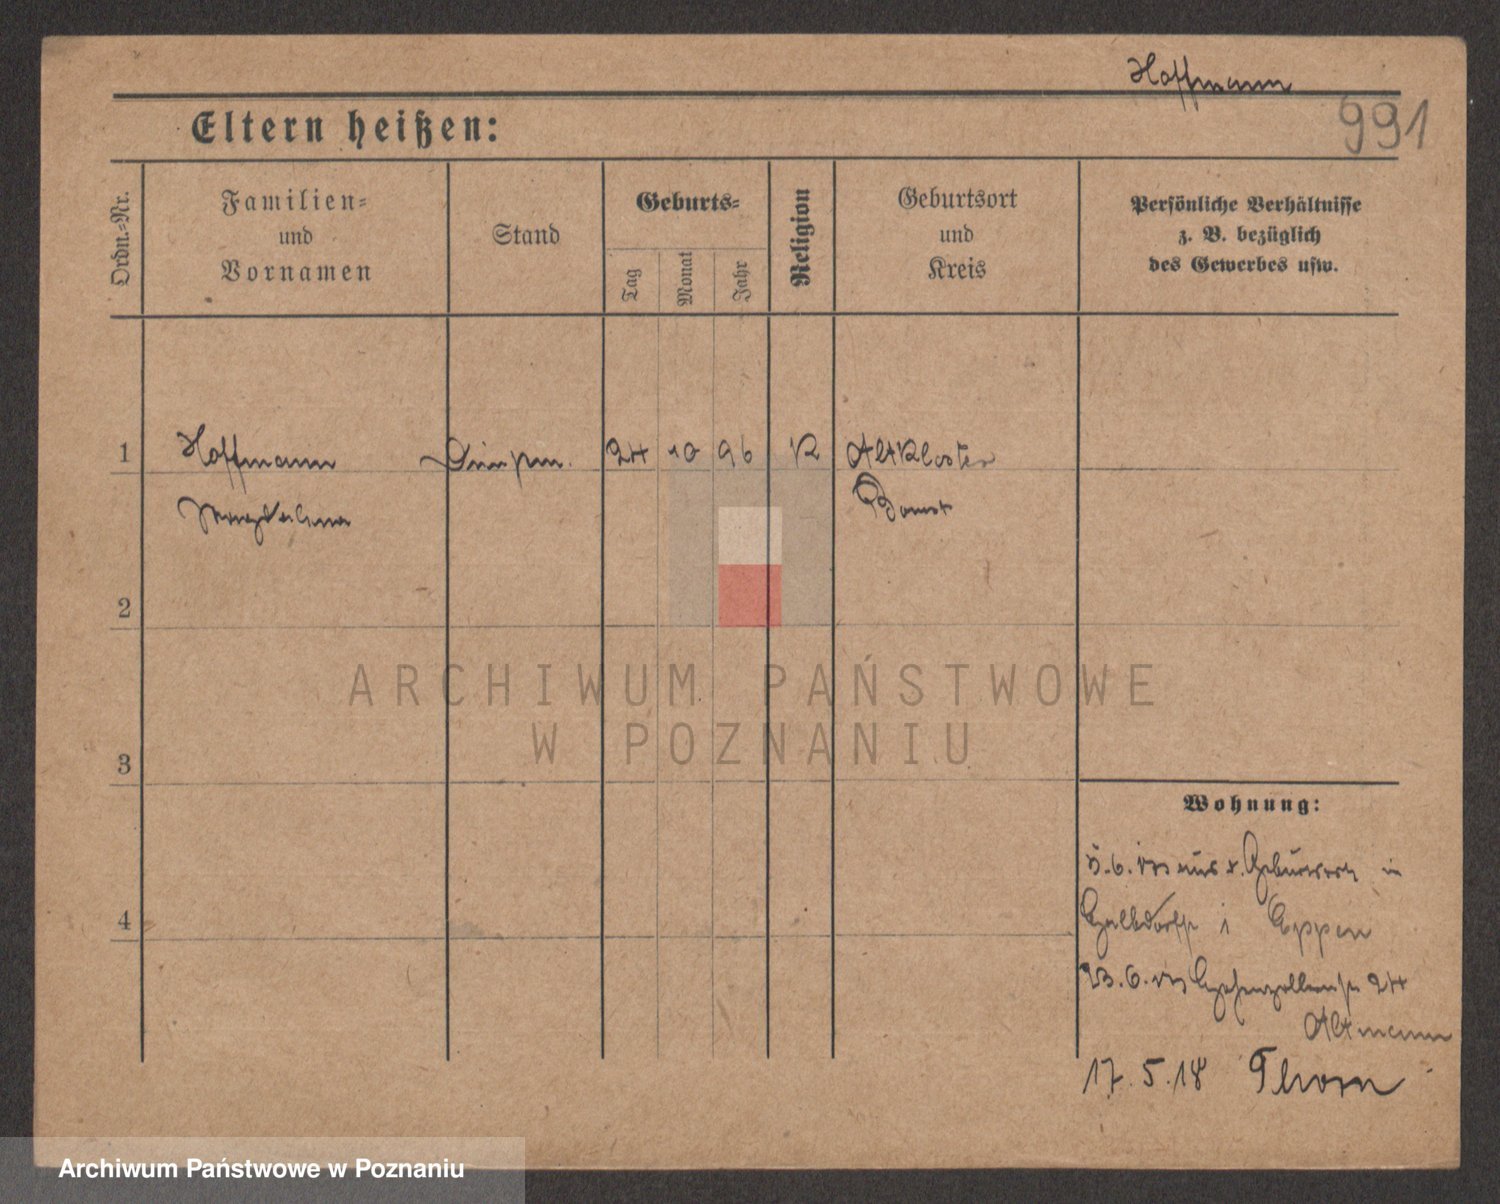 Hoffmann
991
Eltern heißen:
Ordn.-Nr.
Familien-
und
Vornamen
Stand
Geburts-
Tag
Monat
Jahr
Religion
Geburtsort
und
Kreis
Persönliche Verhältnisse
z. B. bezüglich
des Gewerbes usw.
1 Hoffmann 24 10 96 K Altkloster
Magdalena Bomst
2
ARCHIWUM PAŃSTWOWE
W POZNANIU
3
Wohnung:
in
4
i Eppen
23.6. Hohenzollernstr 24
Altmann
17.5.18 Thorn
Archiwum Państwowe w Poznaniu